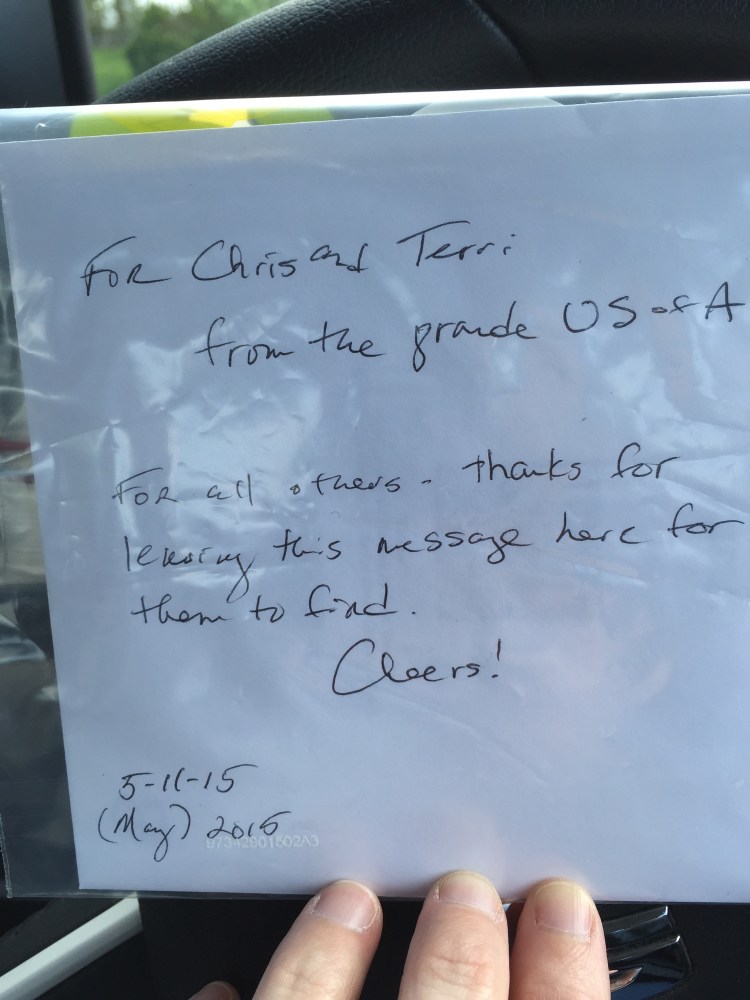 For Chris and Terri
from the grande US of A
For all others - thanks for
leaving this message here for
them to find.
Cheers!
5-11-15
(May) 2015
B7342801502A3